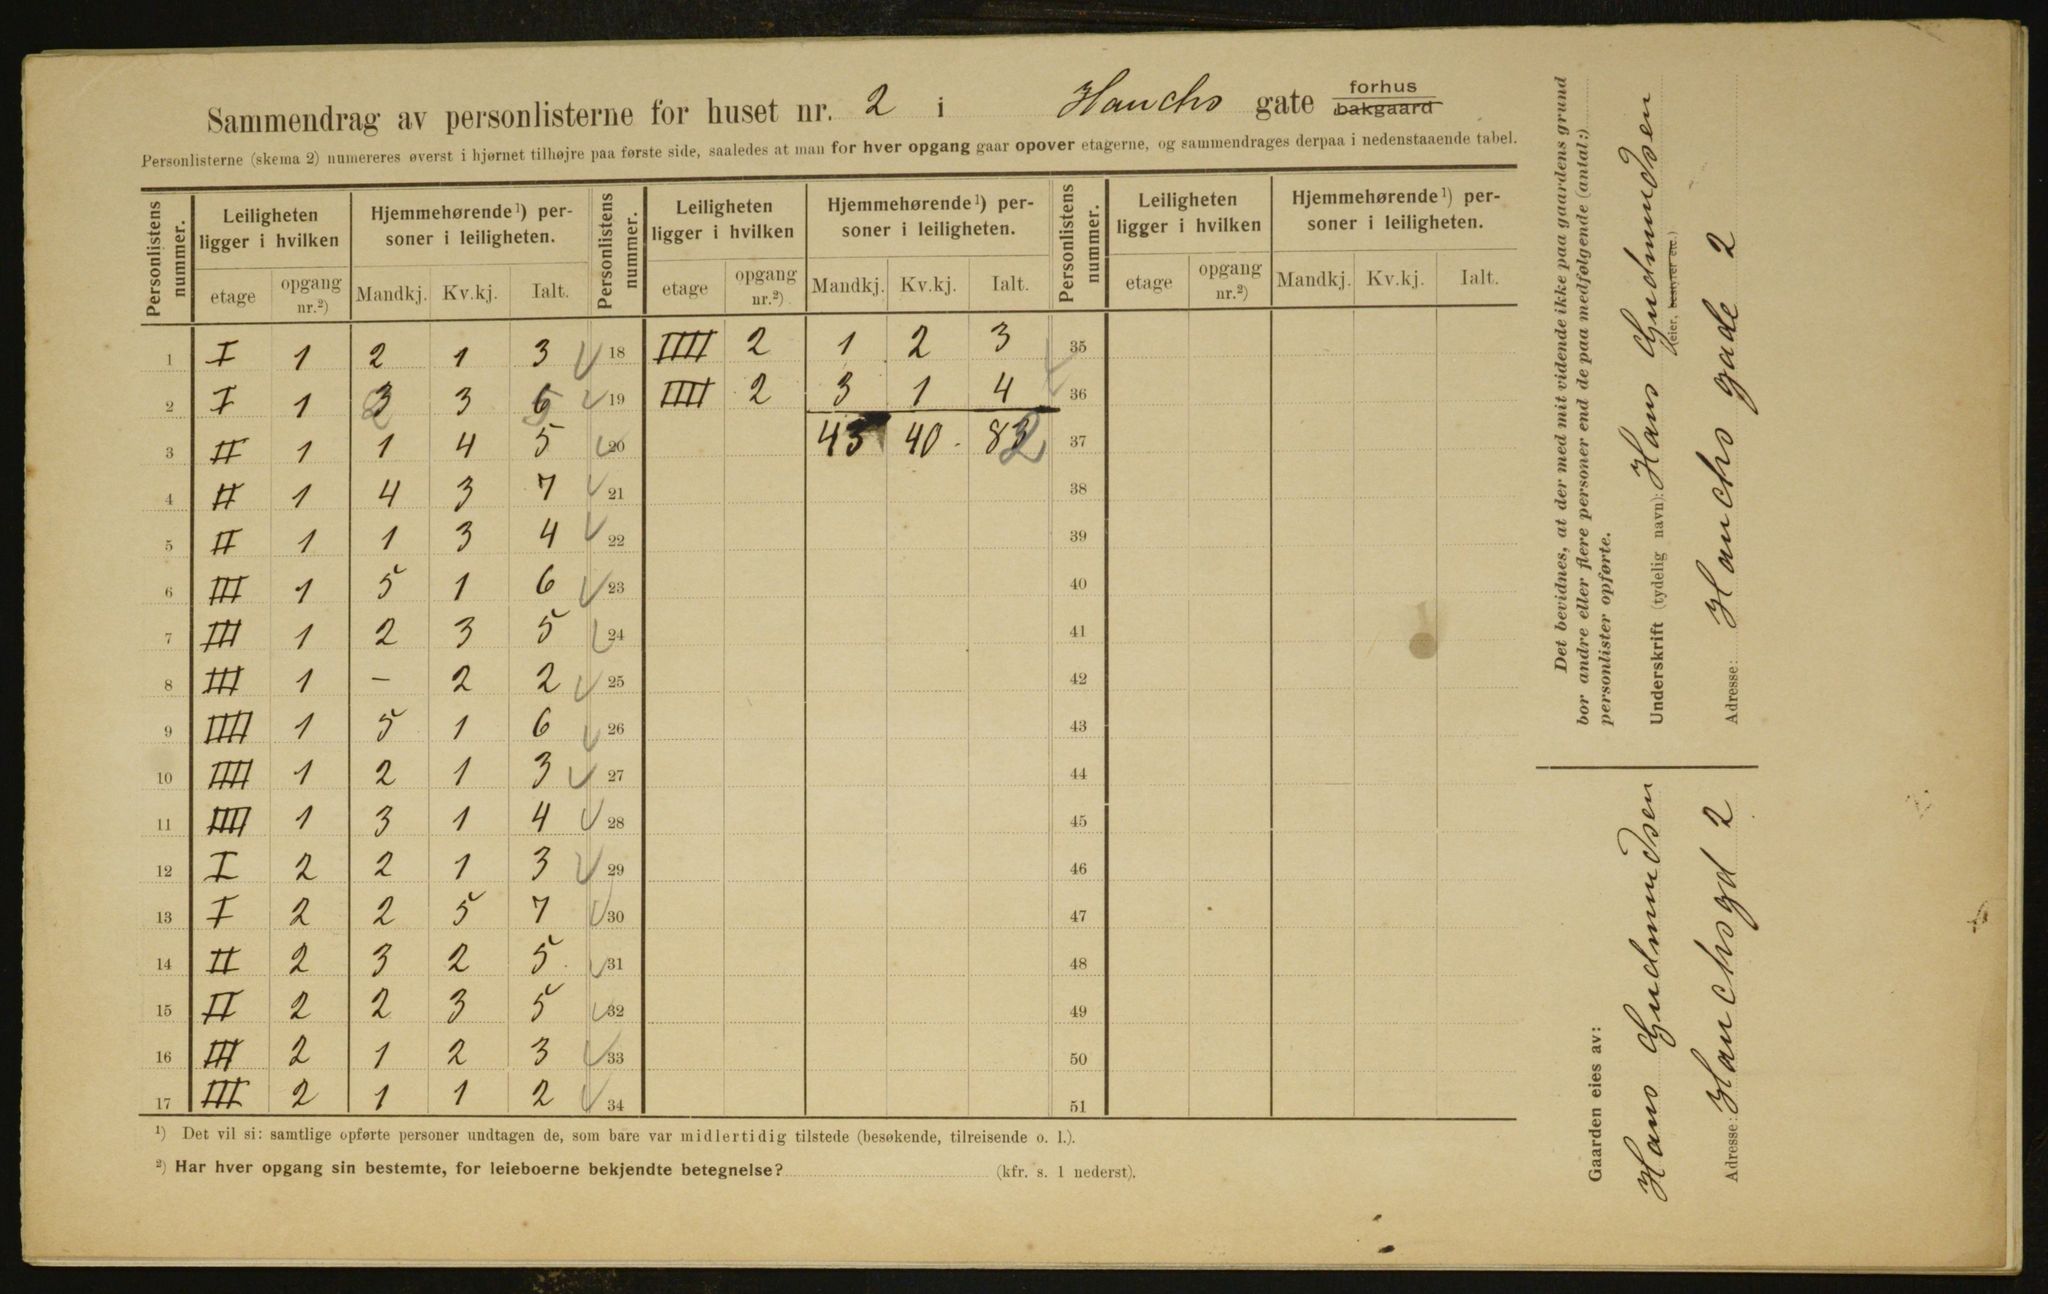 Sammendrag av personlisterne for huset nr. 2 i Hauchs gate forhus bakgaard
Personlisterne (skema 2) numereres øverst i hjørnet tilhøjre paa første side, saaledes at man for hver opgang gaar opover etagerne, og sammendrages derpaa i nedenstaaende tabel.
Personlistens nummer. Leiligheten ligger i hvilken Hjemmehørende¹) personer i leiligheten. Personlistens nummer. Leiligheten ligger i hvilken Hjemmehørende¹) personer i leiligheten. Personlistens nummer. Leiligheten ligger i hvilken Hjemmehørende¹) personer i leiligheten.
etage opgang nr.²) Mandkj. Kv.kj. Ialt. etage opgang nr.²) Mandkj. Kv.kj. Ialt. etage opgang nr.²) Mandkj. Kv.kj. Ialt.
1 I 1 2 1 3 18 IIII 2 1 2 3 35
2 I 1 3 2 3 6 5 19 IIII 2 3 1 4 36
3 II 1 1 4 5 20 43 40 83 2 37
4 II 1 4 3 7 21 38
5 II 1 1 3 4 22 39
6 III 1 5 1 6 23 40
7 III 1 2 3 5 24 41
8 III 1 – 2 2 25 42
9 IIII 1 5 1 6 26 43
10 IIII 1 2 1 3 27 44
11 IIII 1 3 1 4 28 45
12 I 2 2 1 3 29 46
13 I 2 2 5 7 30 47
14 II 2 3 2 5 31 48
15 II 2 2 3 5 32 49
16 III 2 1 2 3 33 50
17 III 2 1 1 2 34 51
¹) Det vil si: samtlige opførte personer undtagen de, som bare var midlertidig tilstede (besøkende, tilreisende o. l.).
²) Har hver opgang sin bestemte, for leieboerne bekjendte betegnelse? (kfr. s. 1 nederst).
Det bevidnes, at der med mit vidende ikke paa gaardens grund
bor andre eller flere personer end de paa medfølgende (antal:)
personlister opførte.
Underskrift (tydelig navn): Hans Gudmundsen
(eier, bestyrer etc.)
Adresse: Hauchs gade 2
Gaarden eies av:
Hans Gudmundsen
Adresse: Hauchsgd 2